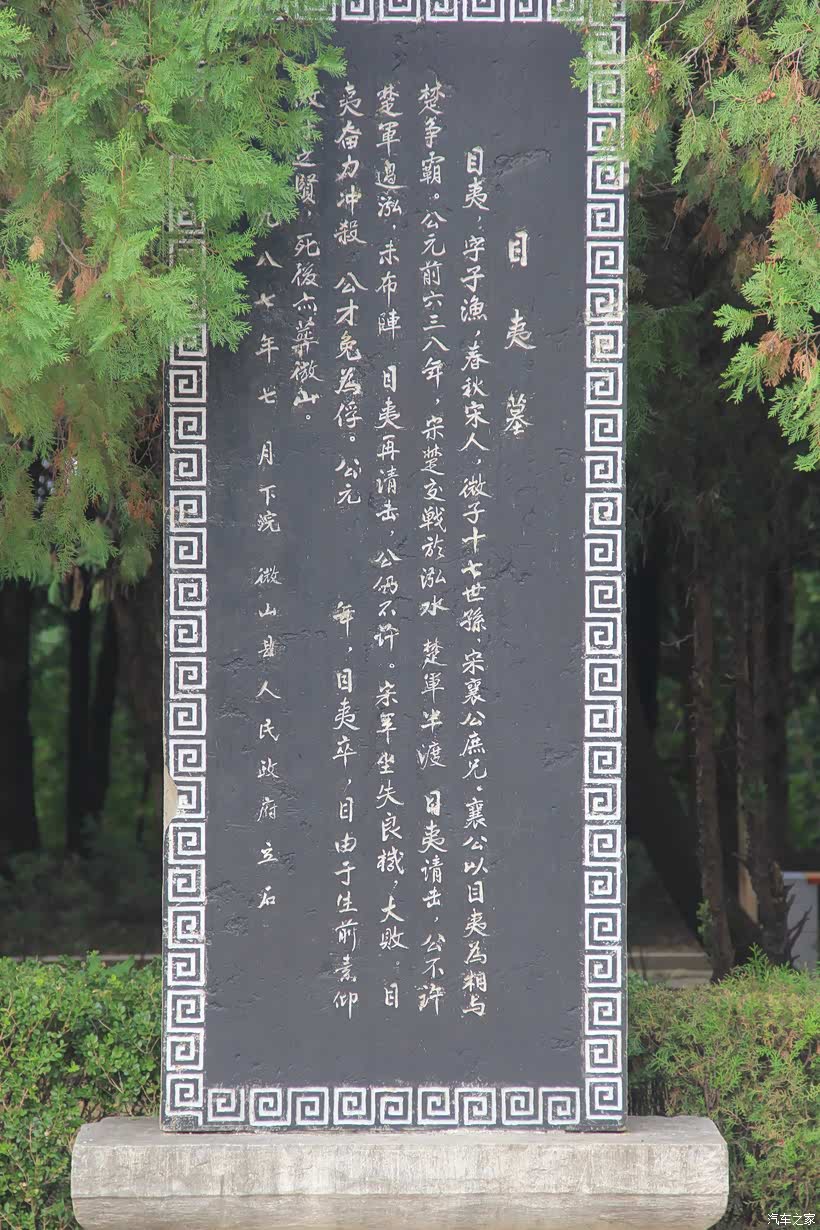 目夷墓
目夷，字子漁，春秋宋人，微子十七世孫，宋襄公庶兄。襄公以目夷為相与
楚争霸。公元前六三八年，宋楚交戦於泓水 楚軍半渡 目夷请击，公不許
楚軍過泓，未布陣 目夷再请击，公仍不許。宋軍坐失良機，大敗。目
夷奋力冲殺 公才免為俘。公元 年，目夷卒，目由于生前素仰
之賢，死後亦葬微山。
八七年七月下浣 微山县人民政府立石
汽车之家